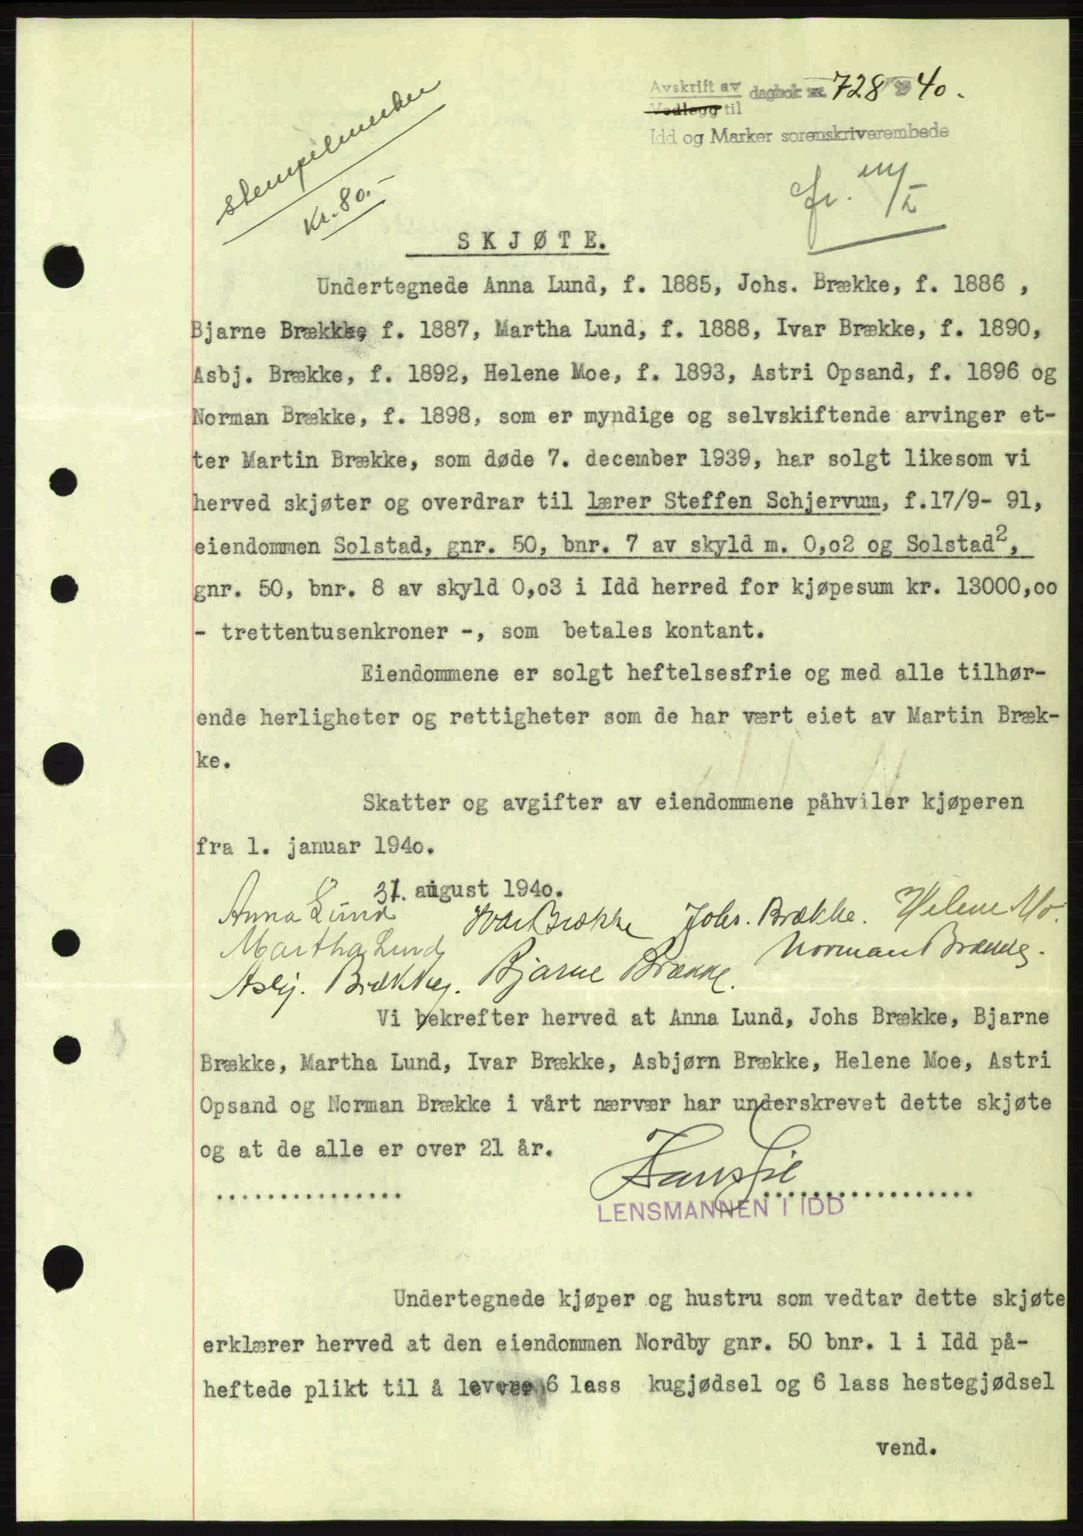 Avskrift av dagbok nr. 728 1940.
Vedlegg til
Idd og Marker sorenskriverembede
stempelmerker
Kr. 80.-
SKJØTE.
Undertegnede Anna Lund, f. 1885, Johs. Brække, f. 1886 ,
Bjarne Brækkke, f. 1887, Martha Lund, f. 1888, Ivar Brække, f. 1890,
Asbj. Brække, f. 1892, Helene Moe, f. 1893, Astri Opsand, f. 1896 og
Norman Brække, f. 1898, som er myndige og selvskiftende arvinger et-
ter Martin Brække, som døde 7. december 1939, har solgt likesom vi
herved skjøter og overdrar til lærer Steffen Schjervum, f.17/9- 91,
eiendommen Solstad, gnr. 50, bnr. 7 av skyld m. 0,o2 og Solstad2,
gnr. 50, bnr. 8 av skyld 0,o3 i Idd herred for kjøpesum kr. 13000,oo
- trettentusenkroner -, som betales kontant.
Eiendommene er solgt heftelsesfrie og med alle tilhør-
ende herligheter og rettigheter som de har vært eiet av Martin Bræk-
ke.
Skatter og avgifter av eiendommene påhviler kjøperen
fra 1. januar 194o.
31. august 194o.
Anna Lund Ivar Brække Johs. Brække. Helene Mo.
Martha Lund Norman Brække.
Asbj. Brække. Bjarne Brække.
Vi bekrefter herved at Anna Lund, Johs Brække, Bjarne
Brække, Martha Lund, Ivar Brække, Asbjørn Brække, Helene Moe, Astri
Opsand og Norman Brække i vårt nærvær har underskrevet dette skjøte
og at de alle er over 21 år.
............... .................
LENSMANNEN I IDD
Undertegnede kjøper og hustru som vedtar dette skjøte
erklærer herved at den eiendommen Nordby gnr. 50 bnr. 1 i Idd på-
heftede plikt til å levere 6 lass kugjødsel og 6 lass hestegjødsel
vend.